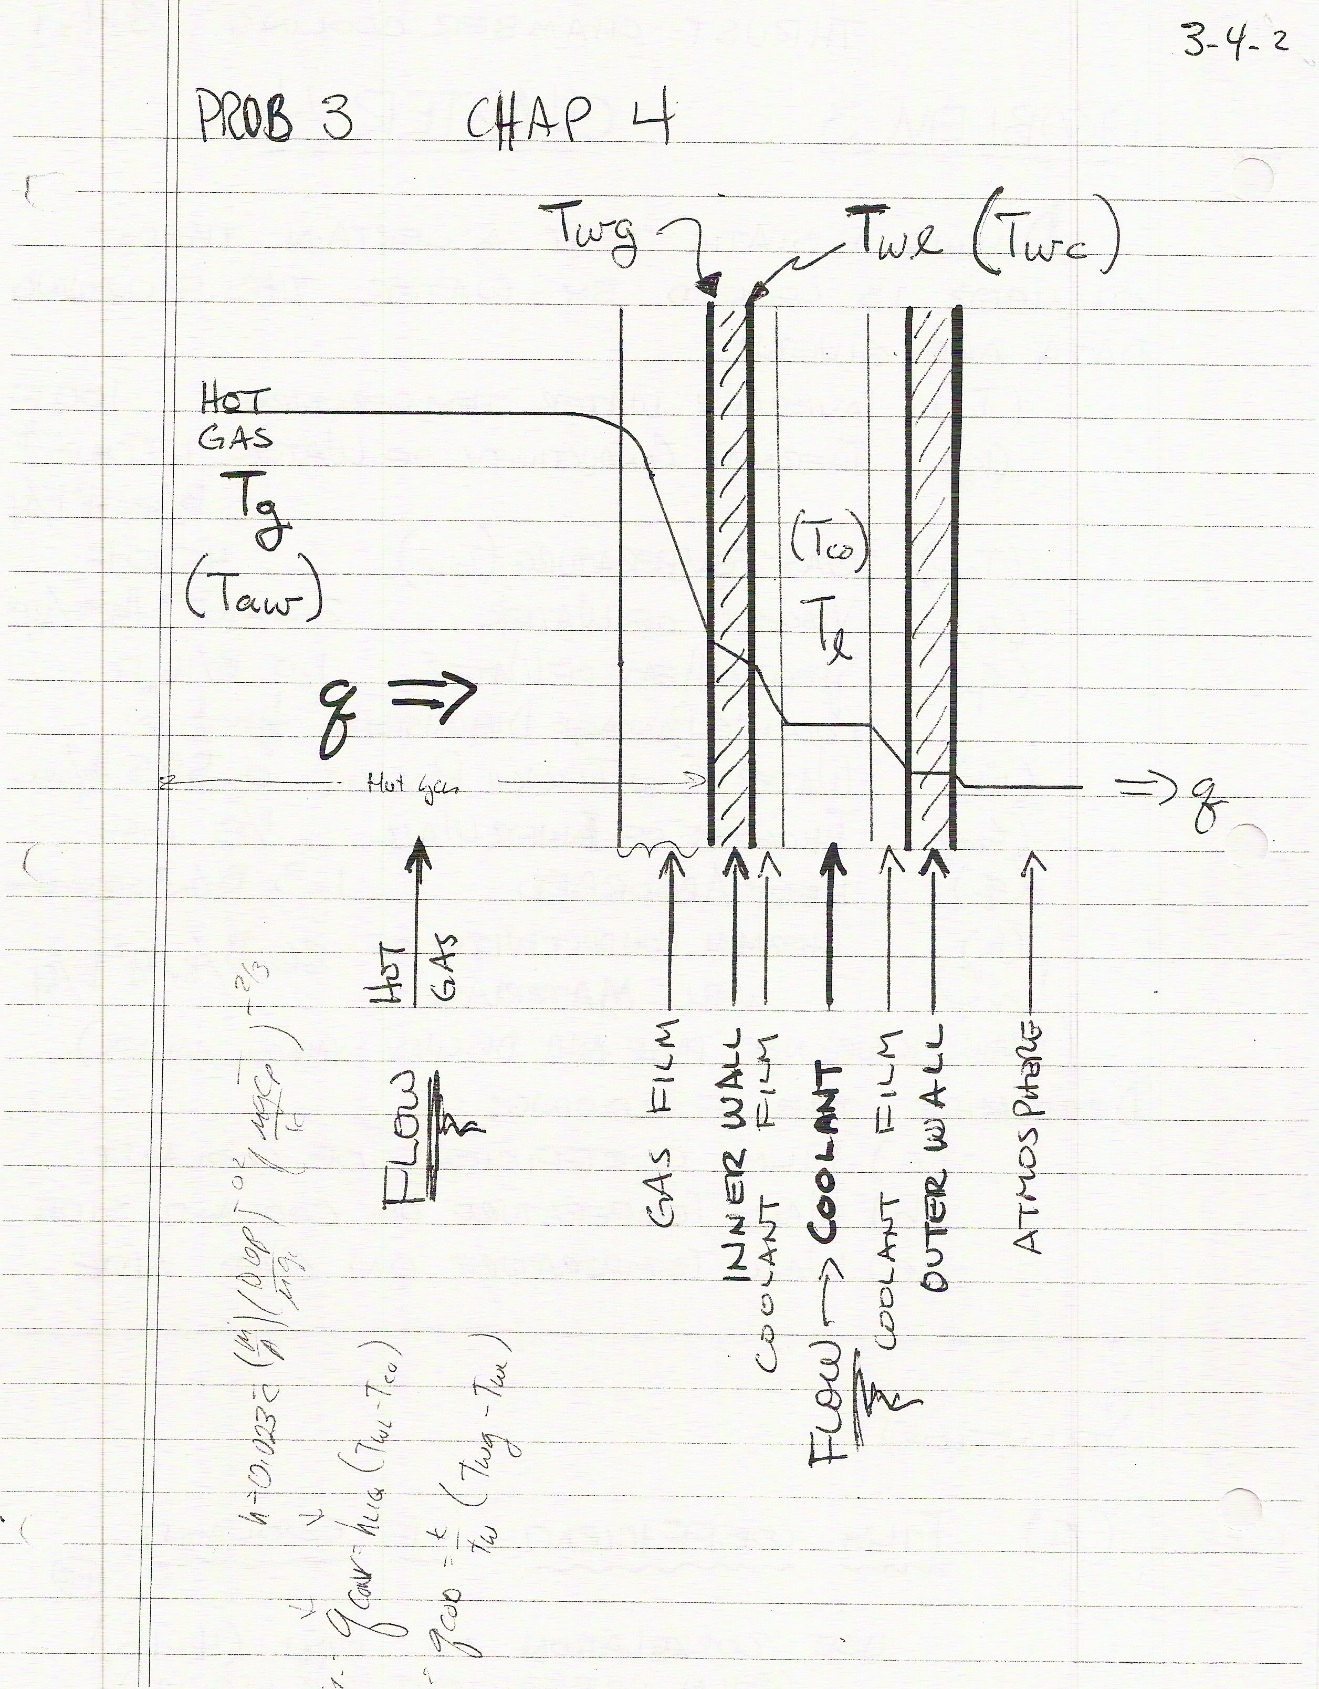 3-4-2
PROB 3 CHAP 4
Twg
Twl (Twc)
HOT
GAS
Tg
(Taw)
(Tco)
Tl
q ⇒
Hot gas
⇒ q
HOT
GAS
FLOW
GAS FILM
INNER WALL
COOLANT FILM
FLOW → COOLANT
COOLANT FILM
OUTER WALL
ATMOSPHERE
qconv = hliq (Twl - Tco)